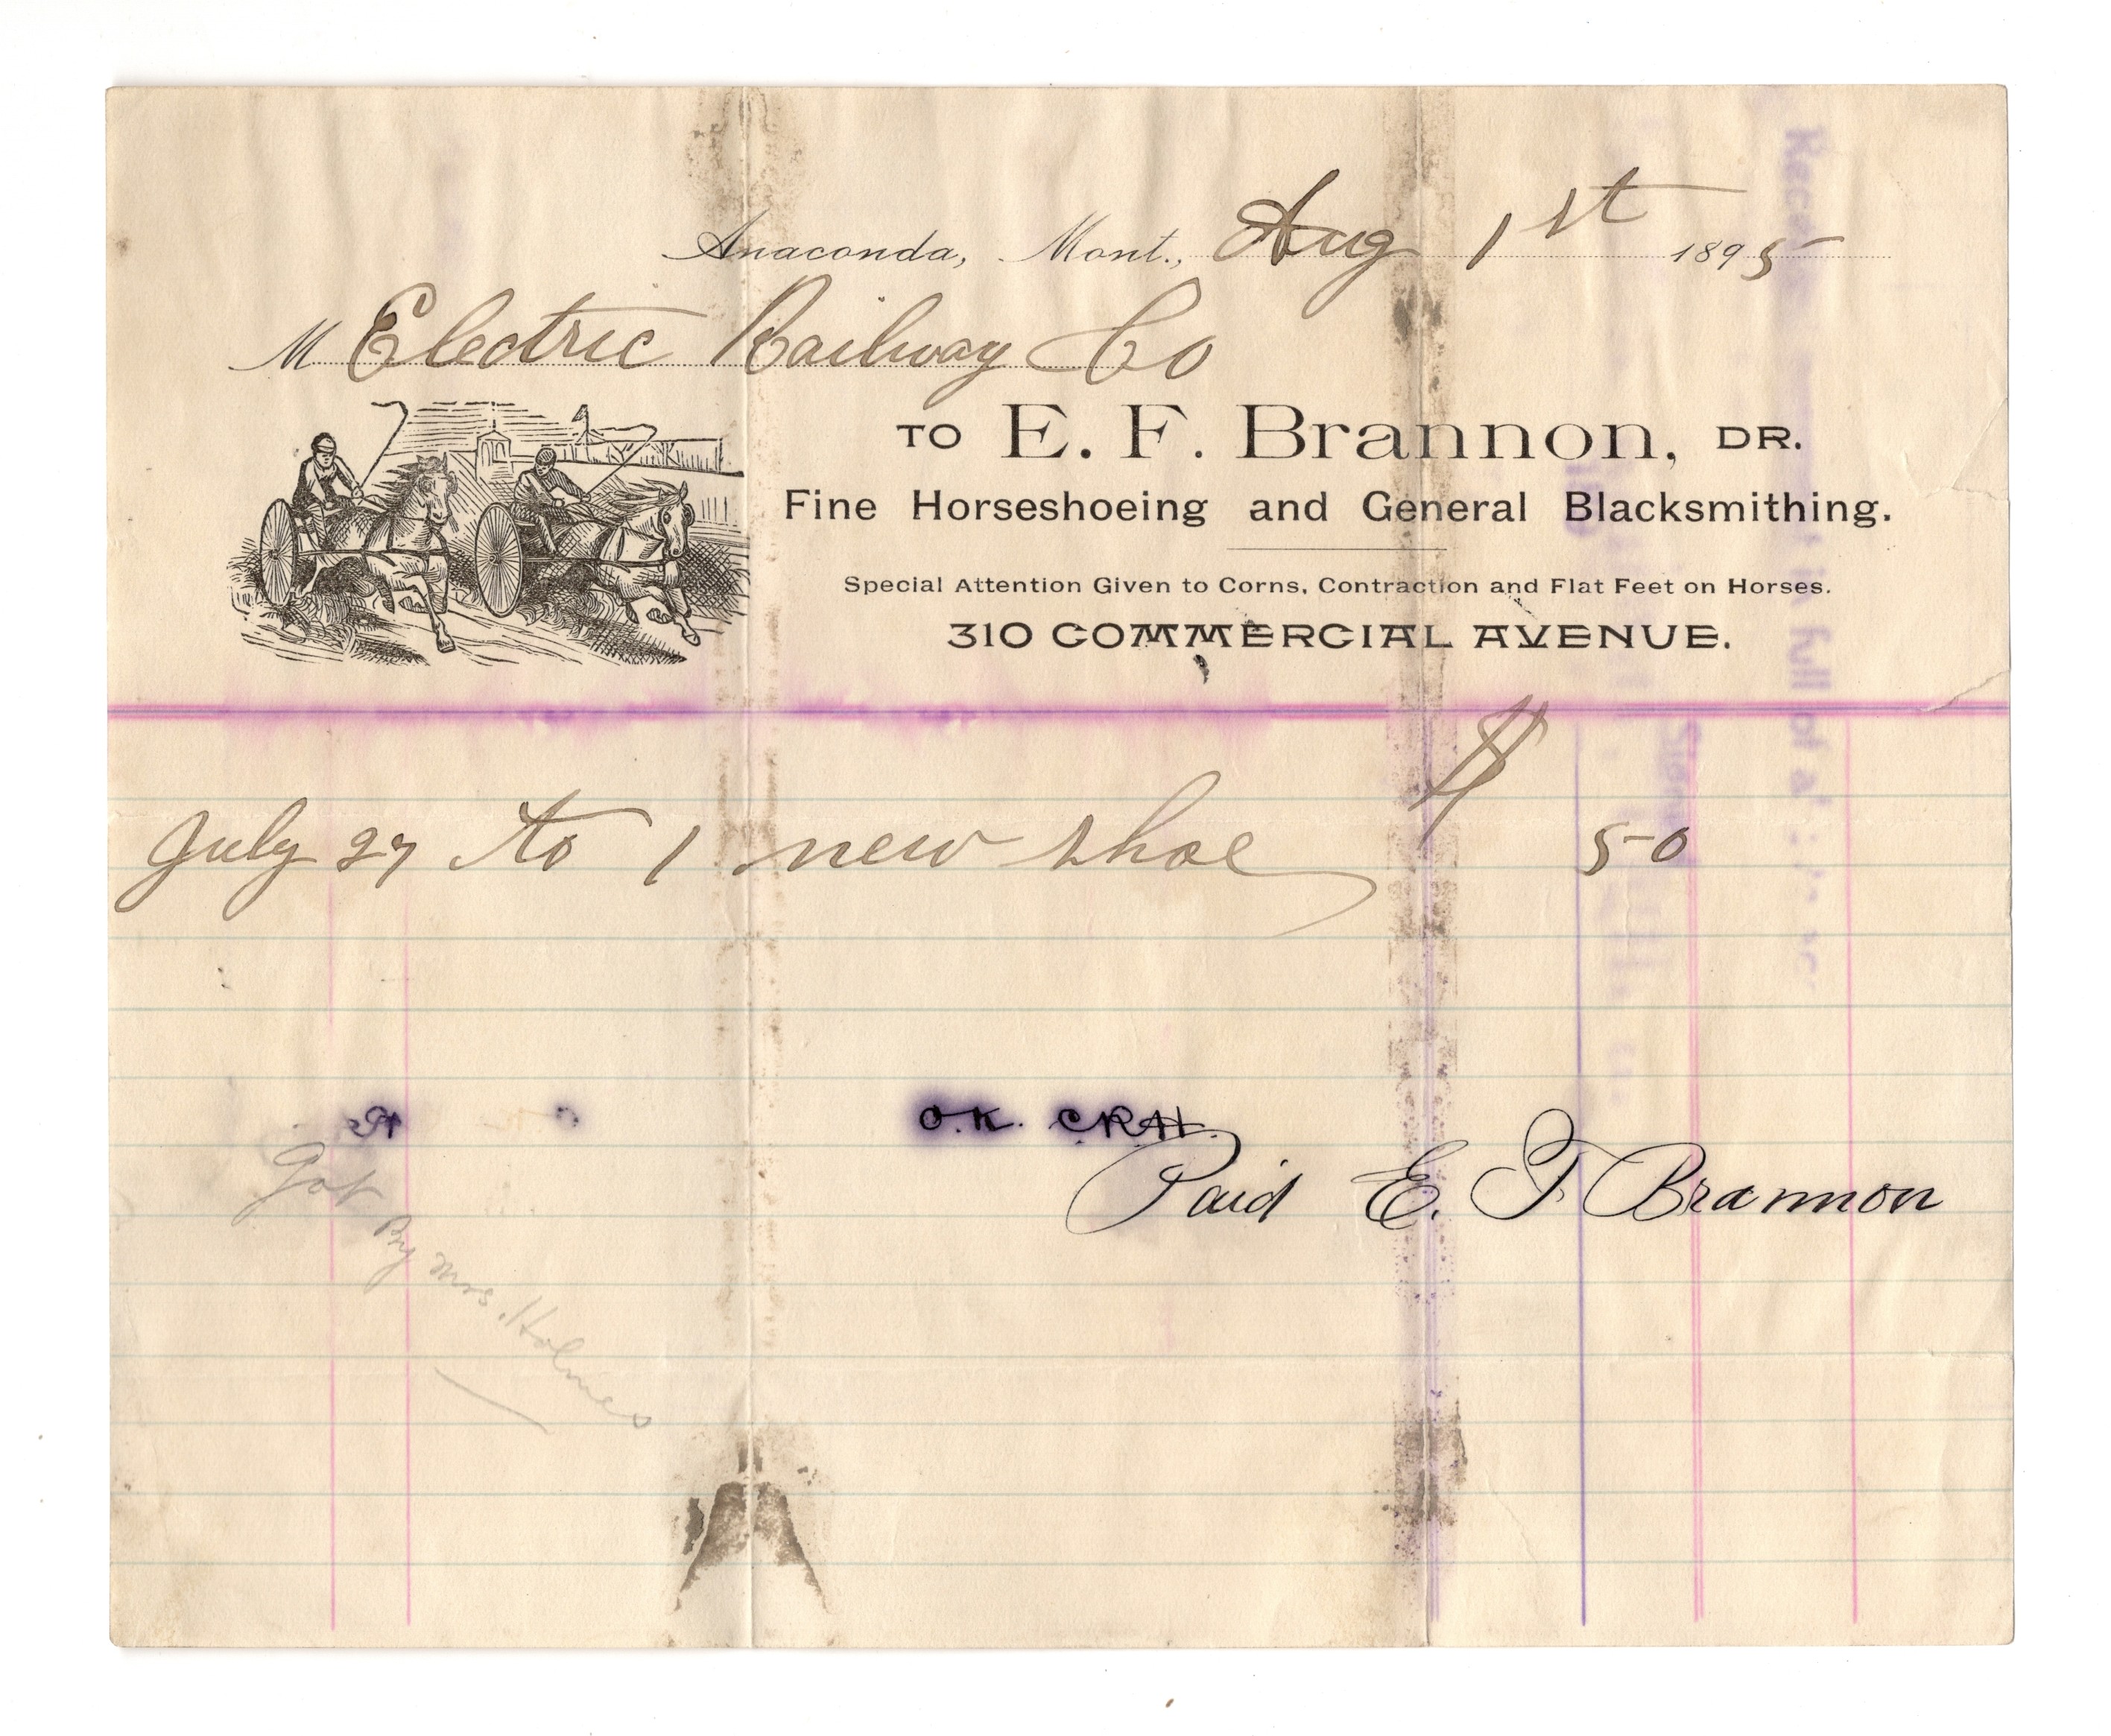 Anaconda, Mont., Aug 1st 1895
M Electric Railway Co
TO E. F. Brannon, DR.
Fine Horseshoeing and General Blacksmithing.
Special Attention Given to Corns, Contraction and Flat Feet on Horses.
310 COMMERCIAL AVENUE.
$
July 27 to 1 new shoe 50
O.K. CRH.
Paid E. F Brannon
Got By Mrs. Holmes